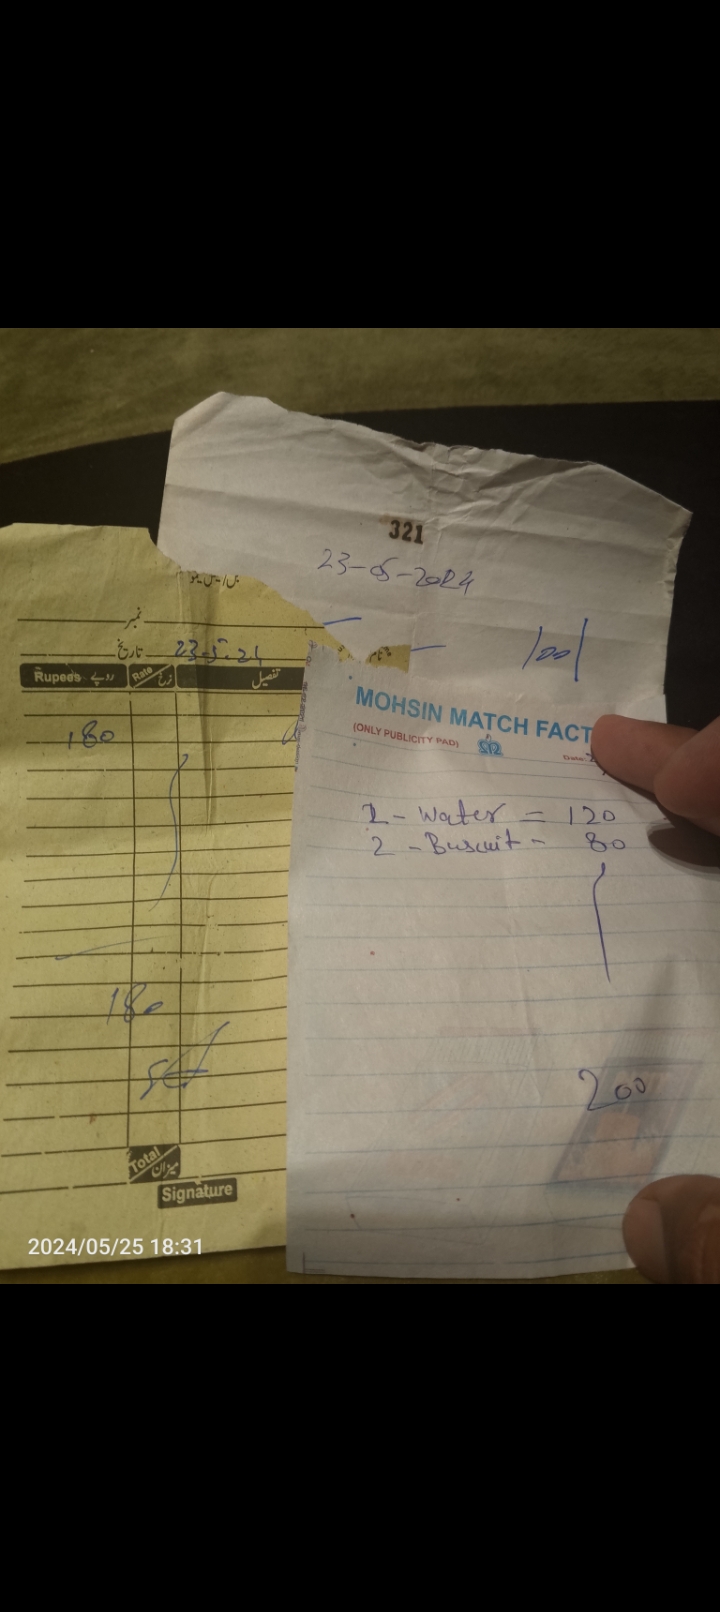 321
23-05-2024
100/
بل / کیش میمو
نمبر
تاریخ 23-5-24
نام
Rupees روپے
Rate نرخ
تفصیل
180
180
Total میزان
Signature
MOHSIN MATCH FACT
(ONLY PUBLICITY PAD)
Date:
2 - Water = 120
2 - Buscuit - 80
200
2024/05/25 18:31